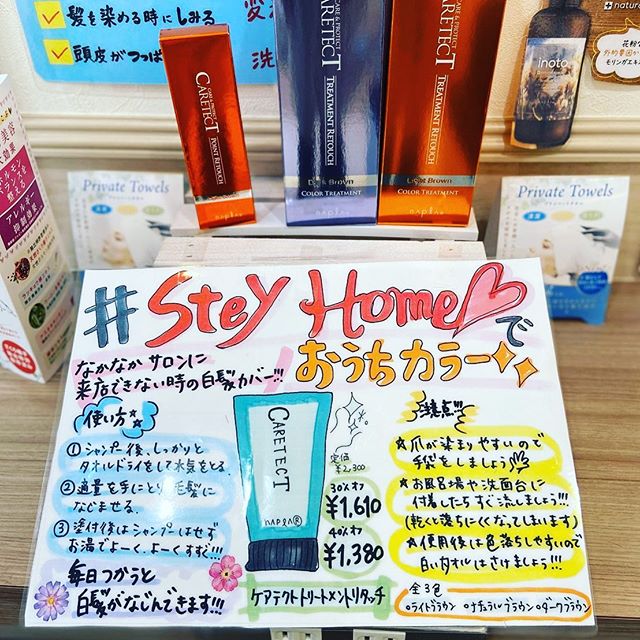 ✓髪を染める時にしみる
✓頭皮がつっぱ
CARE & PROTECT
CARETECT
POINT RETOUCH
CARE & PROTECT
CARETECT
TREATMENT RETOUCH
Dark Brown
COLOR TREATMENT
napla
CARE & PROTECT
CARETECT
TREATMENT RETOUCH
Light Brown
COLOR TREATMENT
napla
natura
inoto
モリンガエキ
Private Towels
Private Towels
#Stey Home♡で
おうちカラー
なかなかサロンに
来店できない時の白髪カバー!!!
使い方
①シャンプー後、しっかりと
タオルドライをして水気をとる。
②適量を手にとり、毛髪に
なじませる。
③塗付後はシャンプーはせず
お湯でよーく、よーくすすぐ!!!
毎日つかうと
白髪がなじんできます!!!
CARETECT
napla®
定価
¥2,300
30%オフ
¥1,610
40%オフ
¥1,380
ケアテクトトリートメントリタッチ
注意点!!!
★爪が染まりやすいので
手袋をしましょう
★お風呂場や洗面台に
付着したらすぐ流しましょう!!!
(乾くと落ちにくくなってしまいます)
★使用後は色落ちしやすいので
白いタオルはさけましょう!!!
全3色
○ライトブラウン ○ナチュラルブラウン ○ダークブラウン